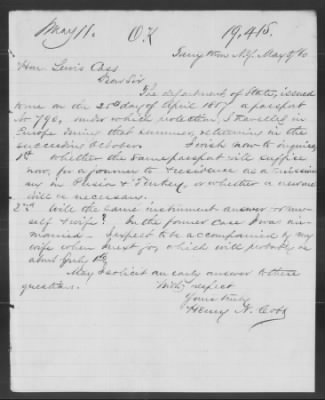 May 11. OK 19,415.
Tarrytown N.Y. May 9/60
Hon. Lewis Cass
Dear Sir
The department of State, issued
to me on the 20th day of April 1857 a passport
No 796, under which protection, I travelled in
Europe during that summer, returning in the
succeeding October. I wish now to inquire,
1st Whether the same passport will suffice
now, for a journey to & residence as a mission
ary in Persia & Turkey, or whether a new one
will be necessary.
2nd Will the same instrument answer for my
self & wife? In the former case I was un
married - I expect to be accompanied by my
wife when next I go, which will probably be
about July 1st
May I solicit an early answer to these
questions.
With respect
Yours truly
Henry N. Cobb